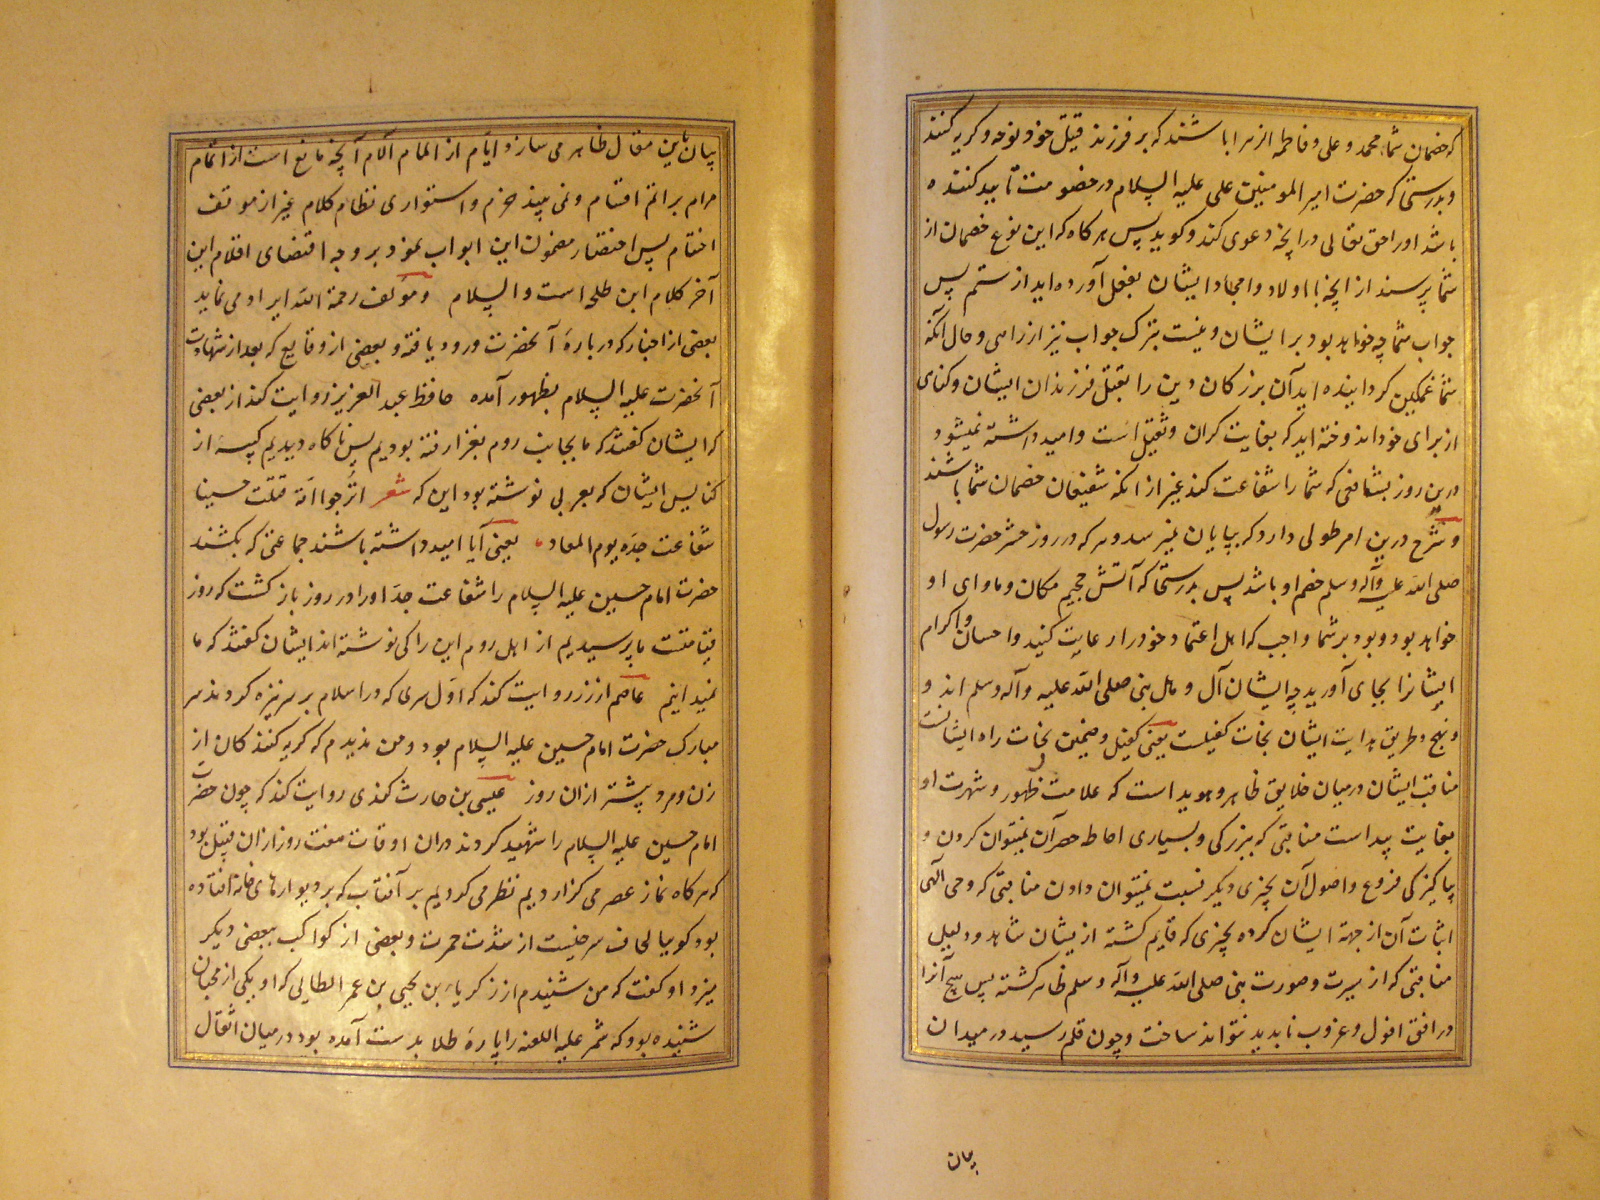 که خصمان شما محمد و علی و فاطمه الزهرا باشند که بر فرزند قتیل خود نوحه و کریه کنند
و بدرستی که حضرت امیر المومنین علی علیه السلام در خصومت تایید کننده
باشد او را حق تعالی در آنچه دعوی کند و کوید پس هرکاه که این نوع خصمان از
شما پرسند از آنچه با اولاد و امجاد ایشان بفعل آورده اید از ستم پس
جواب شما چه خواهد بود بر ایشان و نیست بترک جواب نیز از راهی و حال آنکه
شما غمکین کردانیده اید آن بزرکان دین را بقتل فرزندان ایشان و کناهی
از برای خود اندوخته اید که بغایت کران و ثقیل است و امید داشته نمیشود
درین روز بشافعی که شما را شفاعت کند غیر از آنکه شفیعان خصمان شما باشند
و شرح درین امر طولی دارد که بپایان نمیرسد و هر که در روز حشر حضرت رسول
صلی الله علیه وآله وسلم خصم او باشد پس بدرستی که آتش جحیم مکان و ماوای او
خواهد بود و بود بر شما واجب که اهل اعتماد خود را رعایت کنید و احسان و اکرام
ایشانرا بجای آورید چه ایشان آل و اهل نبی صلی الله علیه وآله وسلم اند و
و نهج و طریق هدایت ایشان نجات کفیلست یعنی کفیل و ضمین نجات راه ایشانست
مناقب ایشان درمیان خلایق ظاهر و هویداست که علامت ظهور و شهرت او
بغایت پیداست مناقبی که ببزرکی و بسیاری احاطه حصر آن نمیتوان کردن و
پاکیزکی فروع و اصول آن بچیزی دیکر نسبت نمیتوان دادن مناقبی که وحی آلهی
اثبات آن از جهة ایشان کرده بچیزی که قایم کشته ازیشان شاهد و دلیل
مناقبی که از سیرت و صورت نبی صلی الله علیه وآله وسلم ظاهر کشته پس هیچ آنرا
در افق افول و غروب ناپدید نتواند ساخت و چون قلم رسید در میدان
بیان
بیان باین مقال ظاهر می سازد و ایام از المام آلام آنچه مانع است از اتمام
مرام بر اتم اقسام و نمی بیند حزم و استواری نظام کلام غیر از موقف
اختتام پس اختصار مضمون این ابواب نمود بر وجه اقتضای اقلام این
آخر کلام ابن طلحه است والسلام و مؤلف رحمة الله ایراد می نماید
بعضی از اخبار که در بارهٔ آنحضرت ورود یافته و بعضی از وقایع که بعد از شهادت
آنحضرت علیه السلام بظهور آمده حافظ عبد العزیز روایت کند از بعضی
که ایشان کفتند که ما بجانب روم بغزا رفته بودیم پس ناکاه دیدیم کنیسه از
کنایس ایشان که بعربی نوشته بود این که شعر اترجوا امة قتلت حسینا
شفاعت جده یوم المعاد یعنی آیا امید داشته باشند جماعتی که بکشند
حضرت امام حسین علیه السلام را شفاعت جد او را در روز بازکشت که روز
قیامتست ما پرسیدیم از اهل روم این را کی نوشته اند ایشان کفتند که ما
نمیدانیم عاصم از زر روایت کند که اول سری که در اسلام بر سر نیزه کردند سر
مبارک حضرت امام حسین علیه السلام بود و من ندیدم که کریه کنندکان از
زن و مرد بیشتر از آن روز عیسی بن حارث کندی روایت کند که چون حضرت
امام حسین علیه السلام را شهید کردند در آن اوقات هفت روز از آن قبیل بود
که هرکاه نماز عصر می کزاردیم نظر می کردیم بر آفتاب که بر دیوارهای خانه افتاده
بود کوییا لحاف سرخیست از شدت حمرت و بعضی از کواکب ببعضی دیکر
میزد او کفت که من شنیدم از زکریاء بن یحیی بن عمر الطایی که او یکی از محبان
شنیده بود که شمر علیه اللعنه را پارهٔ طلا بدست آمده بود در میان اثقال